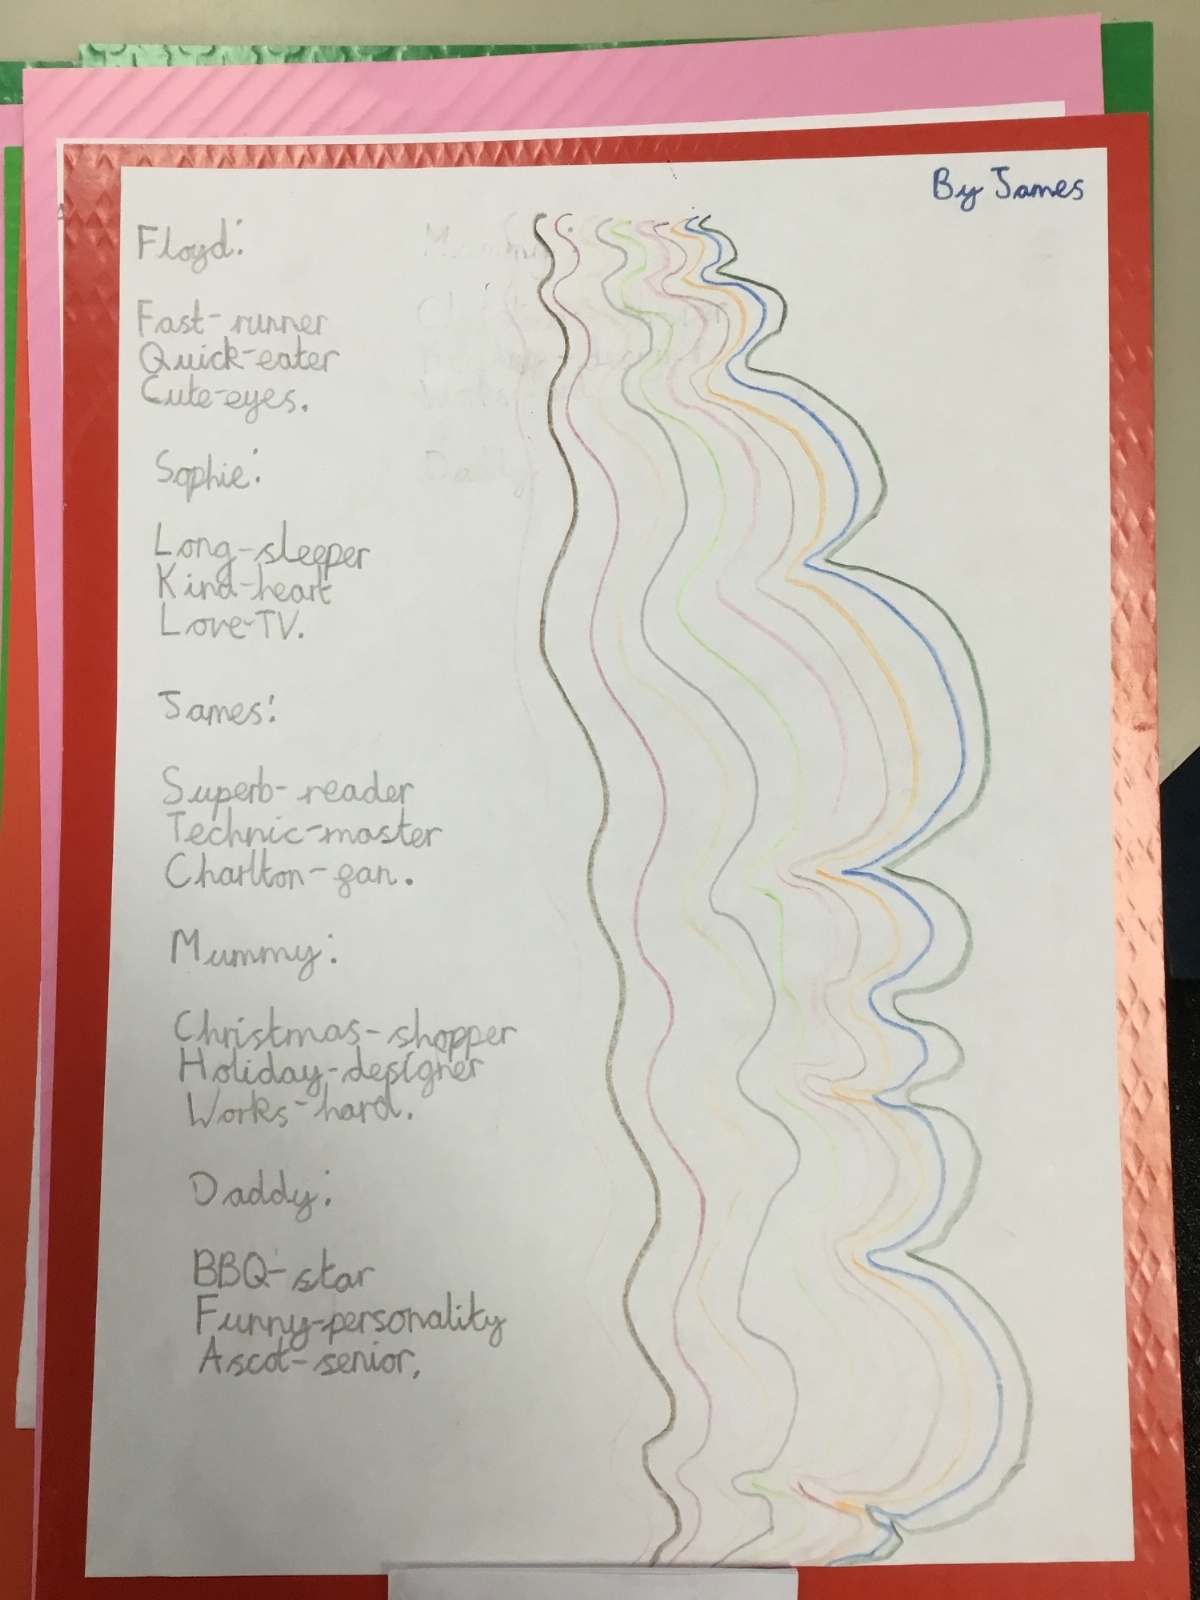 By James
Floyd:
Fast-runner
Quick-eater
Cute-eyes.
Sophie:
Long-sleeper
Kind-heart
Love-TV.
James:
Superb-reader
Technic-master
Charlton-fan.
Mummy:
Christmas-shopper
Holiday-designer
Works-hard.
Daddy:
BBQ-star
Funny-personality
Ascot-senior.